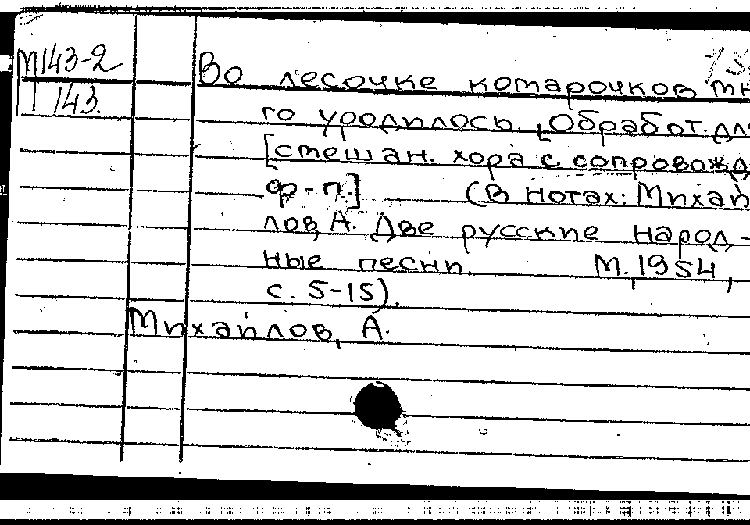 М143-2
143.
Во лесочке комарочков мн
го уродилось. Обработ. дл
[смешан. хора с сопровожд
ф-п.] (В нотах: Михай
лов, А. Две русские народ-
ные песни. М., 1954,
с. 5-15).
Михайлов, А.